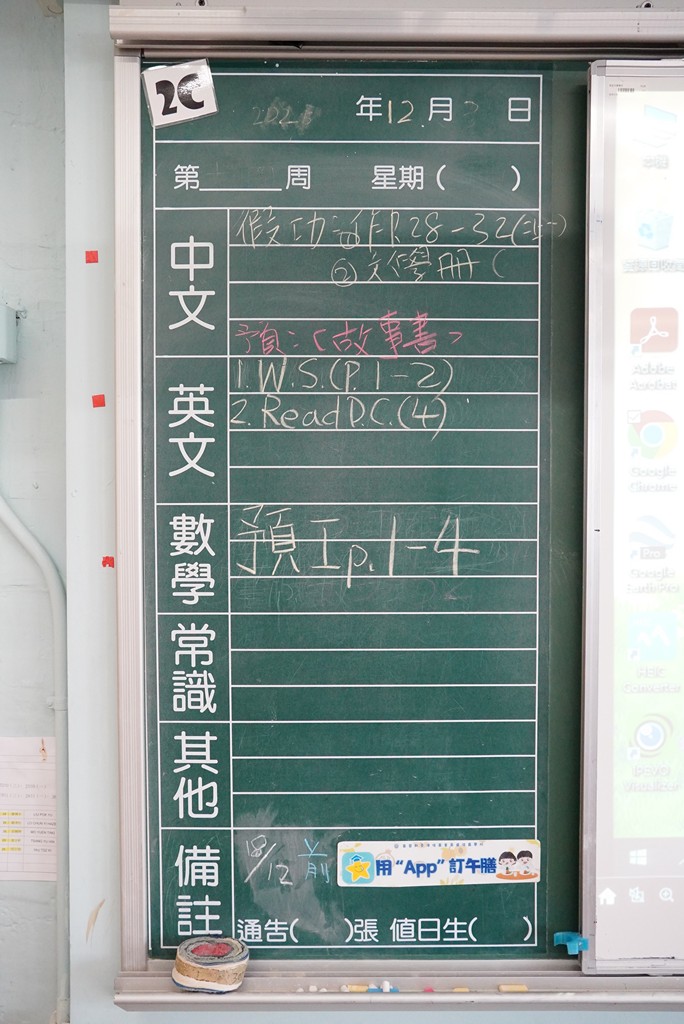 2C
年12月3日
第______周 星期( )
中文
假功:①作P.28-32(二上一)
②文學冊(
預:<故事書>
英文
1.W.S.(P.1-2)
2.Read P.C.(4)
數學
預工p.1-4
常識
其他
備註
18/12 前
用“App”訂午膳
通告( )張 值日生( )
Adobe Acrobat
Google Chrome
Google Earth Pro